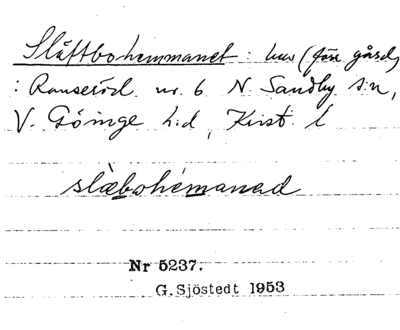 Slåttbohemmanet : hus (förr gård)
: Ranseröd nr. 6 N. Sandby sn,
V. Göinge h:d, Krist. l
slàbohémanad
Nr 5237.
G. Sjöstedt 1953